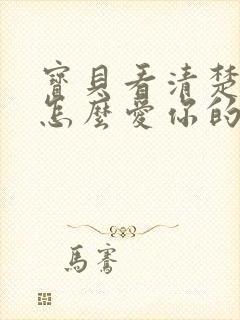 寶貝看清楚
怎麼愛你的
馬騫